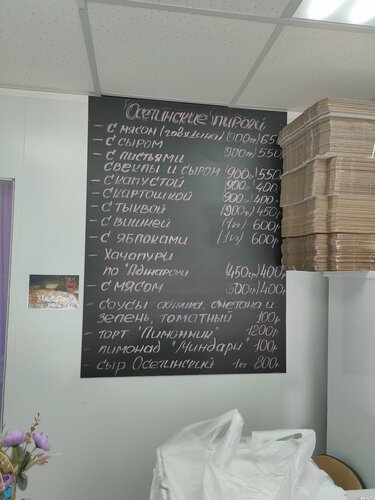 "Осетинские" пироги
- с мясом (говядина) (900г) 650
- с сыром (900г) 550
- с листьями
свеклы и сыром (900г) 550
- с капустой (900г) 400
- с картошкой (900г) 400
- с тыквой (900г) 450
- с вишней (1кг) 600р
- с яблоками (1кг) 600р
- Хачапури
по "Аджарски (450г) 400р
- с мясом (500г) 400р
- соусы сметана и
зелень, томатный 100р
- торт "Лимонник" 1200р
- лимонад "Миндари" 100р
- сыр Осетинский 1кг 800р